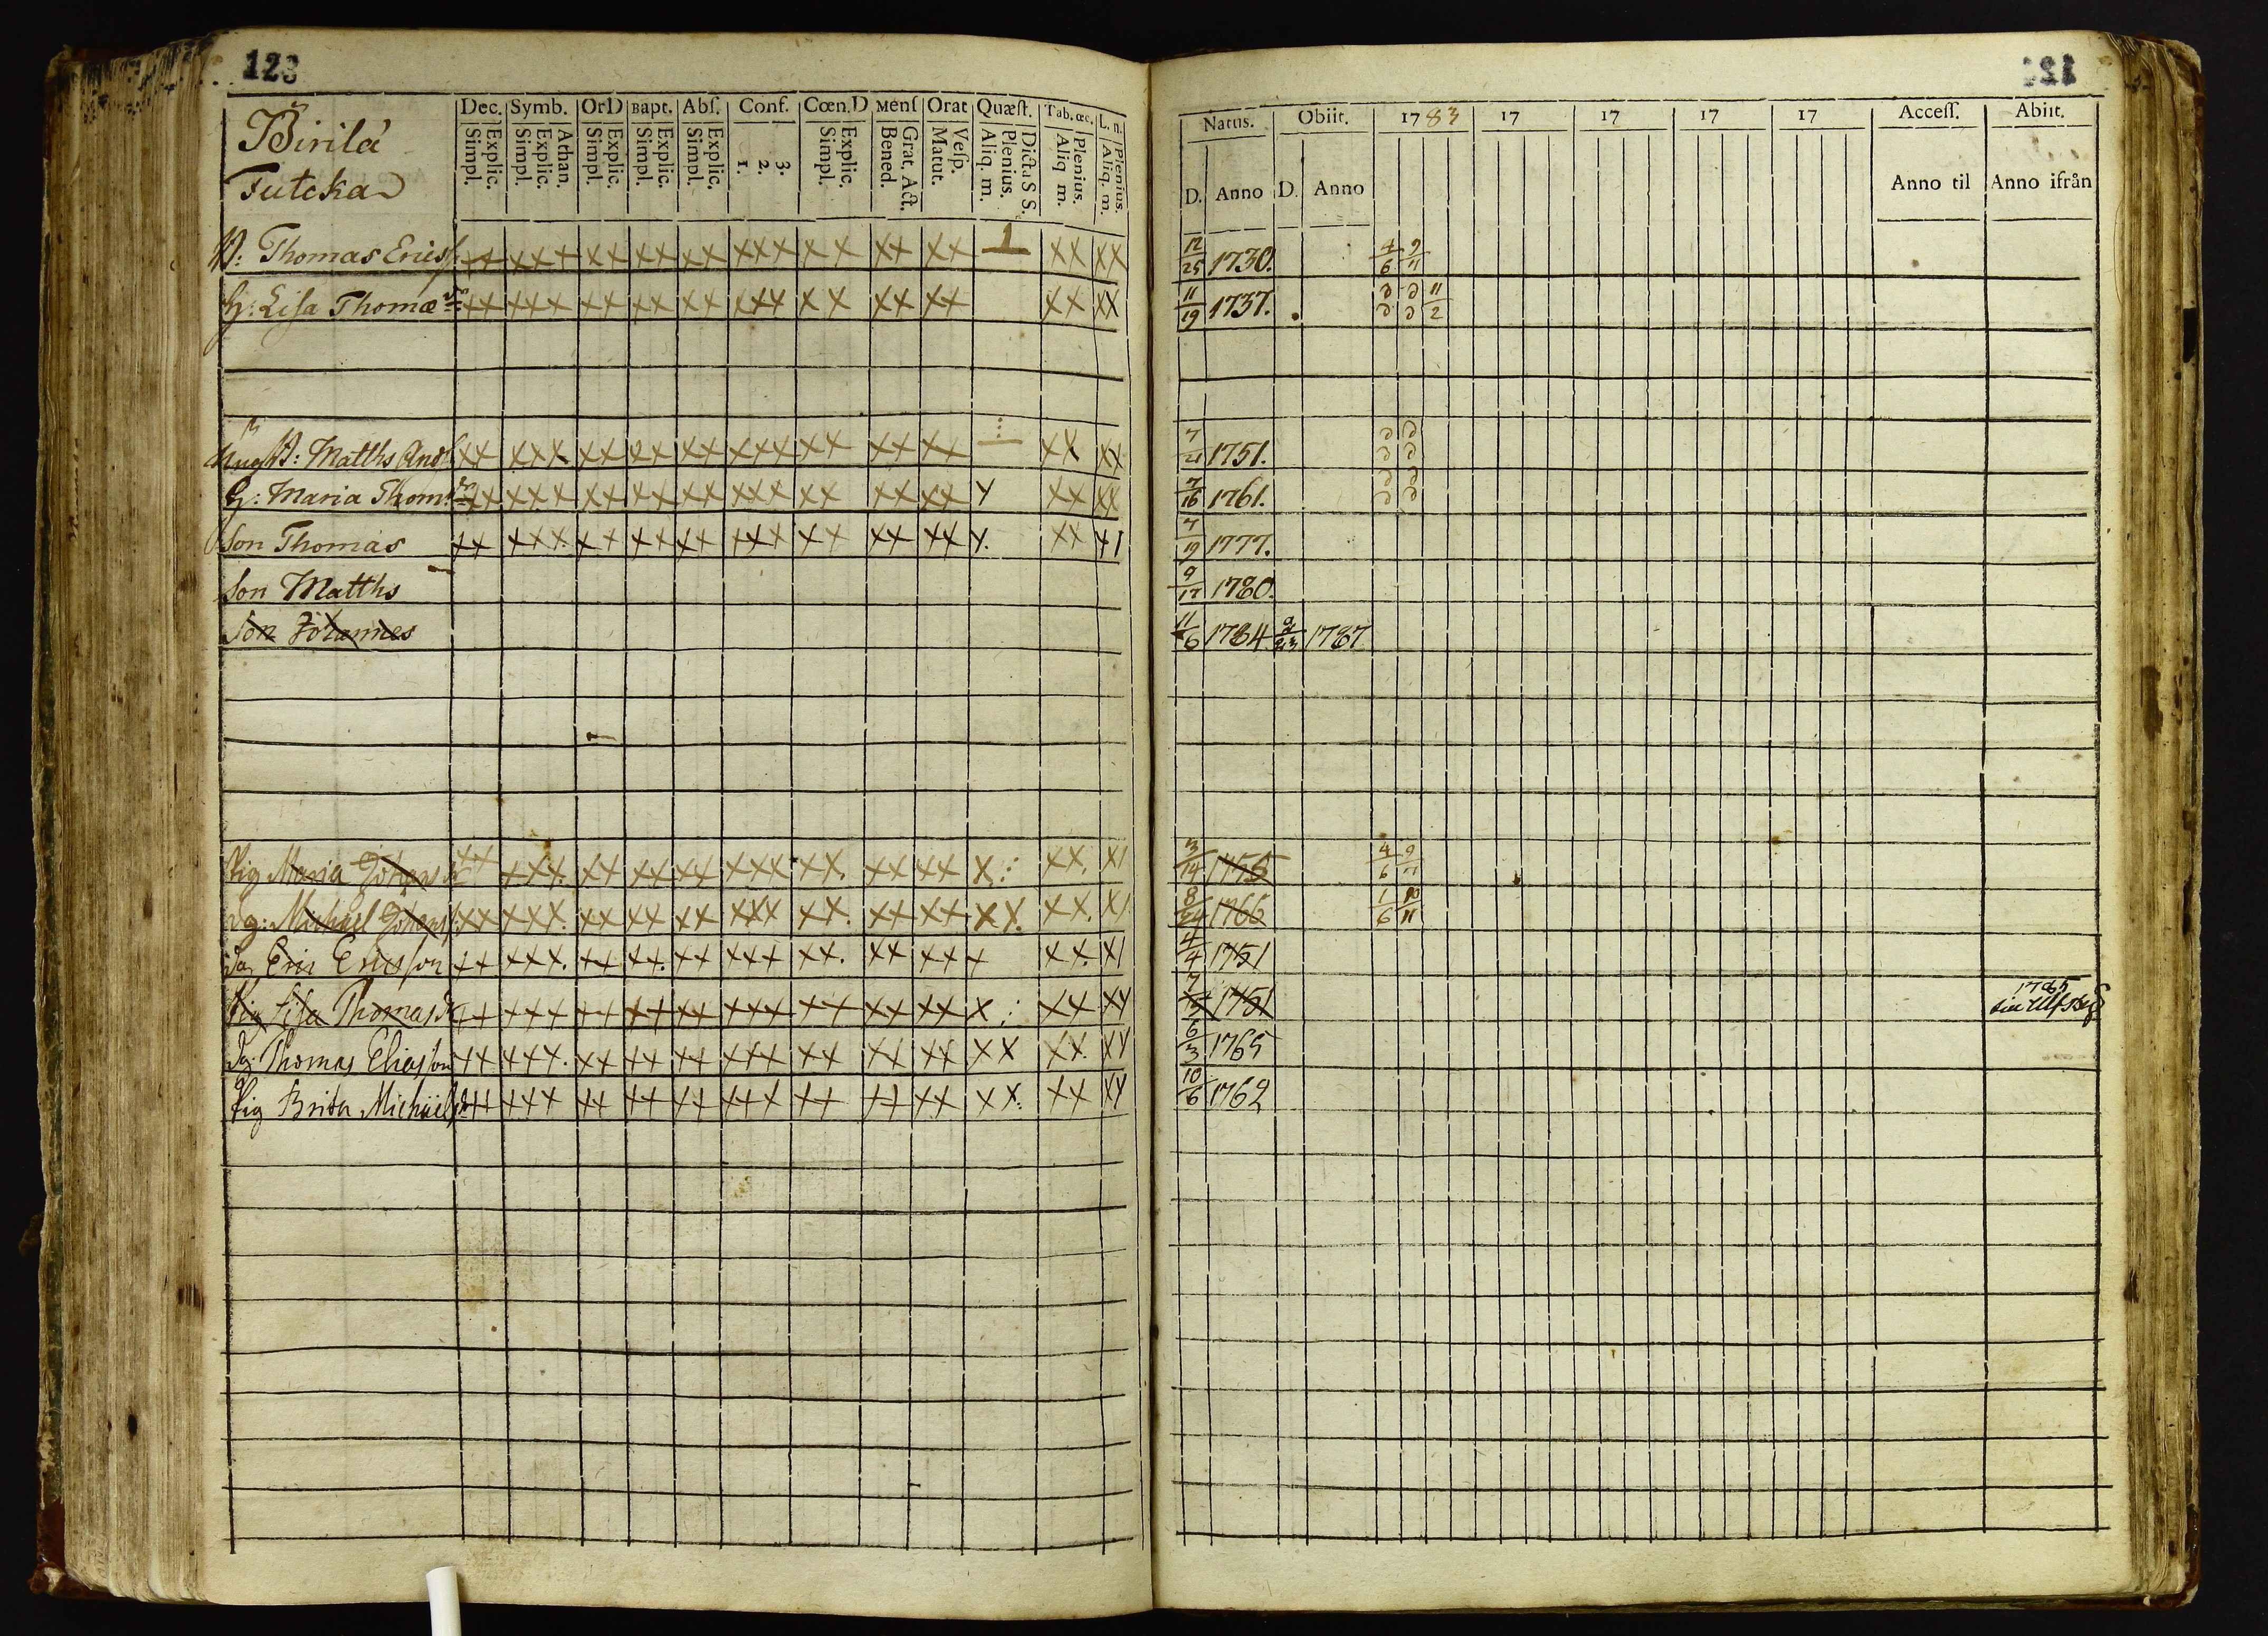 123
Birilä
Tutcka
Dec. Symb. OrD Bapt. Abſ. Conf. Cœn.D Menſ Orat Quæſt. Tab. œc. L. n.
Explic. Simpl. Athan. Explic. Simpl. Explic. Simpl. Explic. Simpl. Explic. Simpl. 3. 2. 1. Explic. Simpl. Grat. Act. Bened. Veſp. Matut. Dicta S S. Plenius. Aliq. m. Plenius. Aliq m. Plenius. Aliq. m.
Natus. Obiit. 1783 17 17 17 17 Acceſſ. Abiit.
D. Anno D. Anno Anno til Anno ifrån
B: Thomas Ericsſ. xx xxx xx xx xx xxx xx xx xx 1 xx xx 12/25 1730. 4/6 9/11
H: Liſa Thomædr xx xxx xx xx xx xxx xx xx xx xx xx 11/19 1737. 11/2
B: Matths Andſ xx xxx xx xx xx xxx xx xx xx xx xx 1751.
H: Maria Thomdr xx xxx xx xx xx xxx xx xx xx y xx xx 7/16 1761.
Son Thomas xx xxx xx xx xx xxx xx xx xx y. xx x1 7/19 1777.
Son Matths 9/17 1780.
Son Johannes 11/6 1784 1787
Pig Maria Johans dr xx xxx xx xx xx xxx xx xx xx x: xx. x1 3/14 4/6 9/11
Dg: Michael Johansſ xx xxx xx xx xx xxx xx. xx xx xx. xx. x1 8/24 1766 1/6 10/11
Dg Eric Ericsſon xx xxx. xx xx. xx xxx xx. xx xx x xx. x1 4/4 1751
Pig Liſa Thomas dr xx xxx xx xx xx xxx xx xx xx x: xx xy 1751 1785
Dg. Thomas Eliasſon xx xxx. xx xx xx xxx xx xx xx xx xx. xy 6/3 1765
Pig Brita Michäels dr xx xxx xx xx xx xxx xx xx xx xx: xx xy 10/6 1762